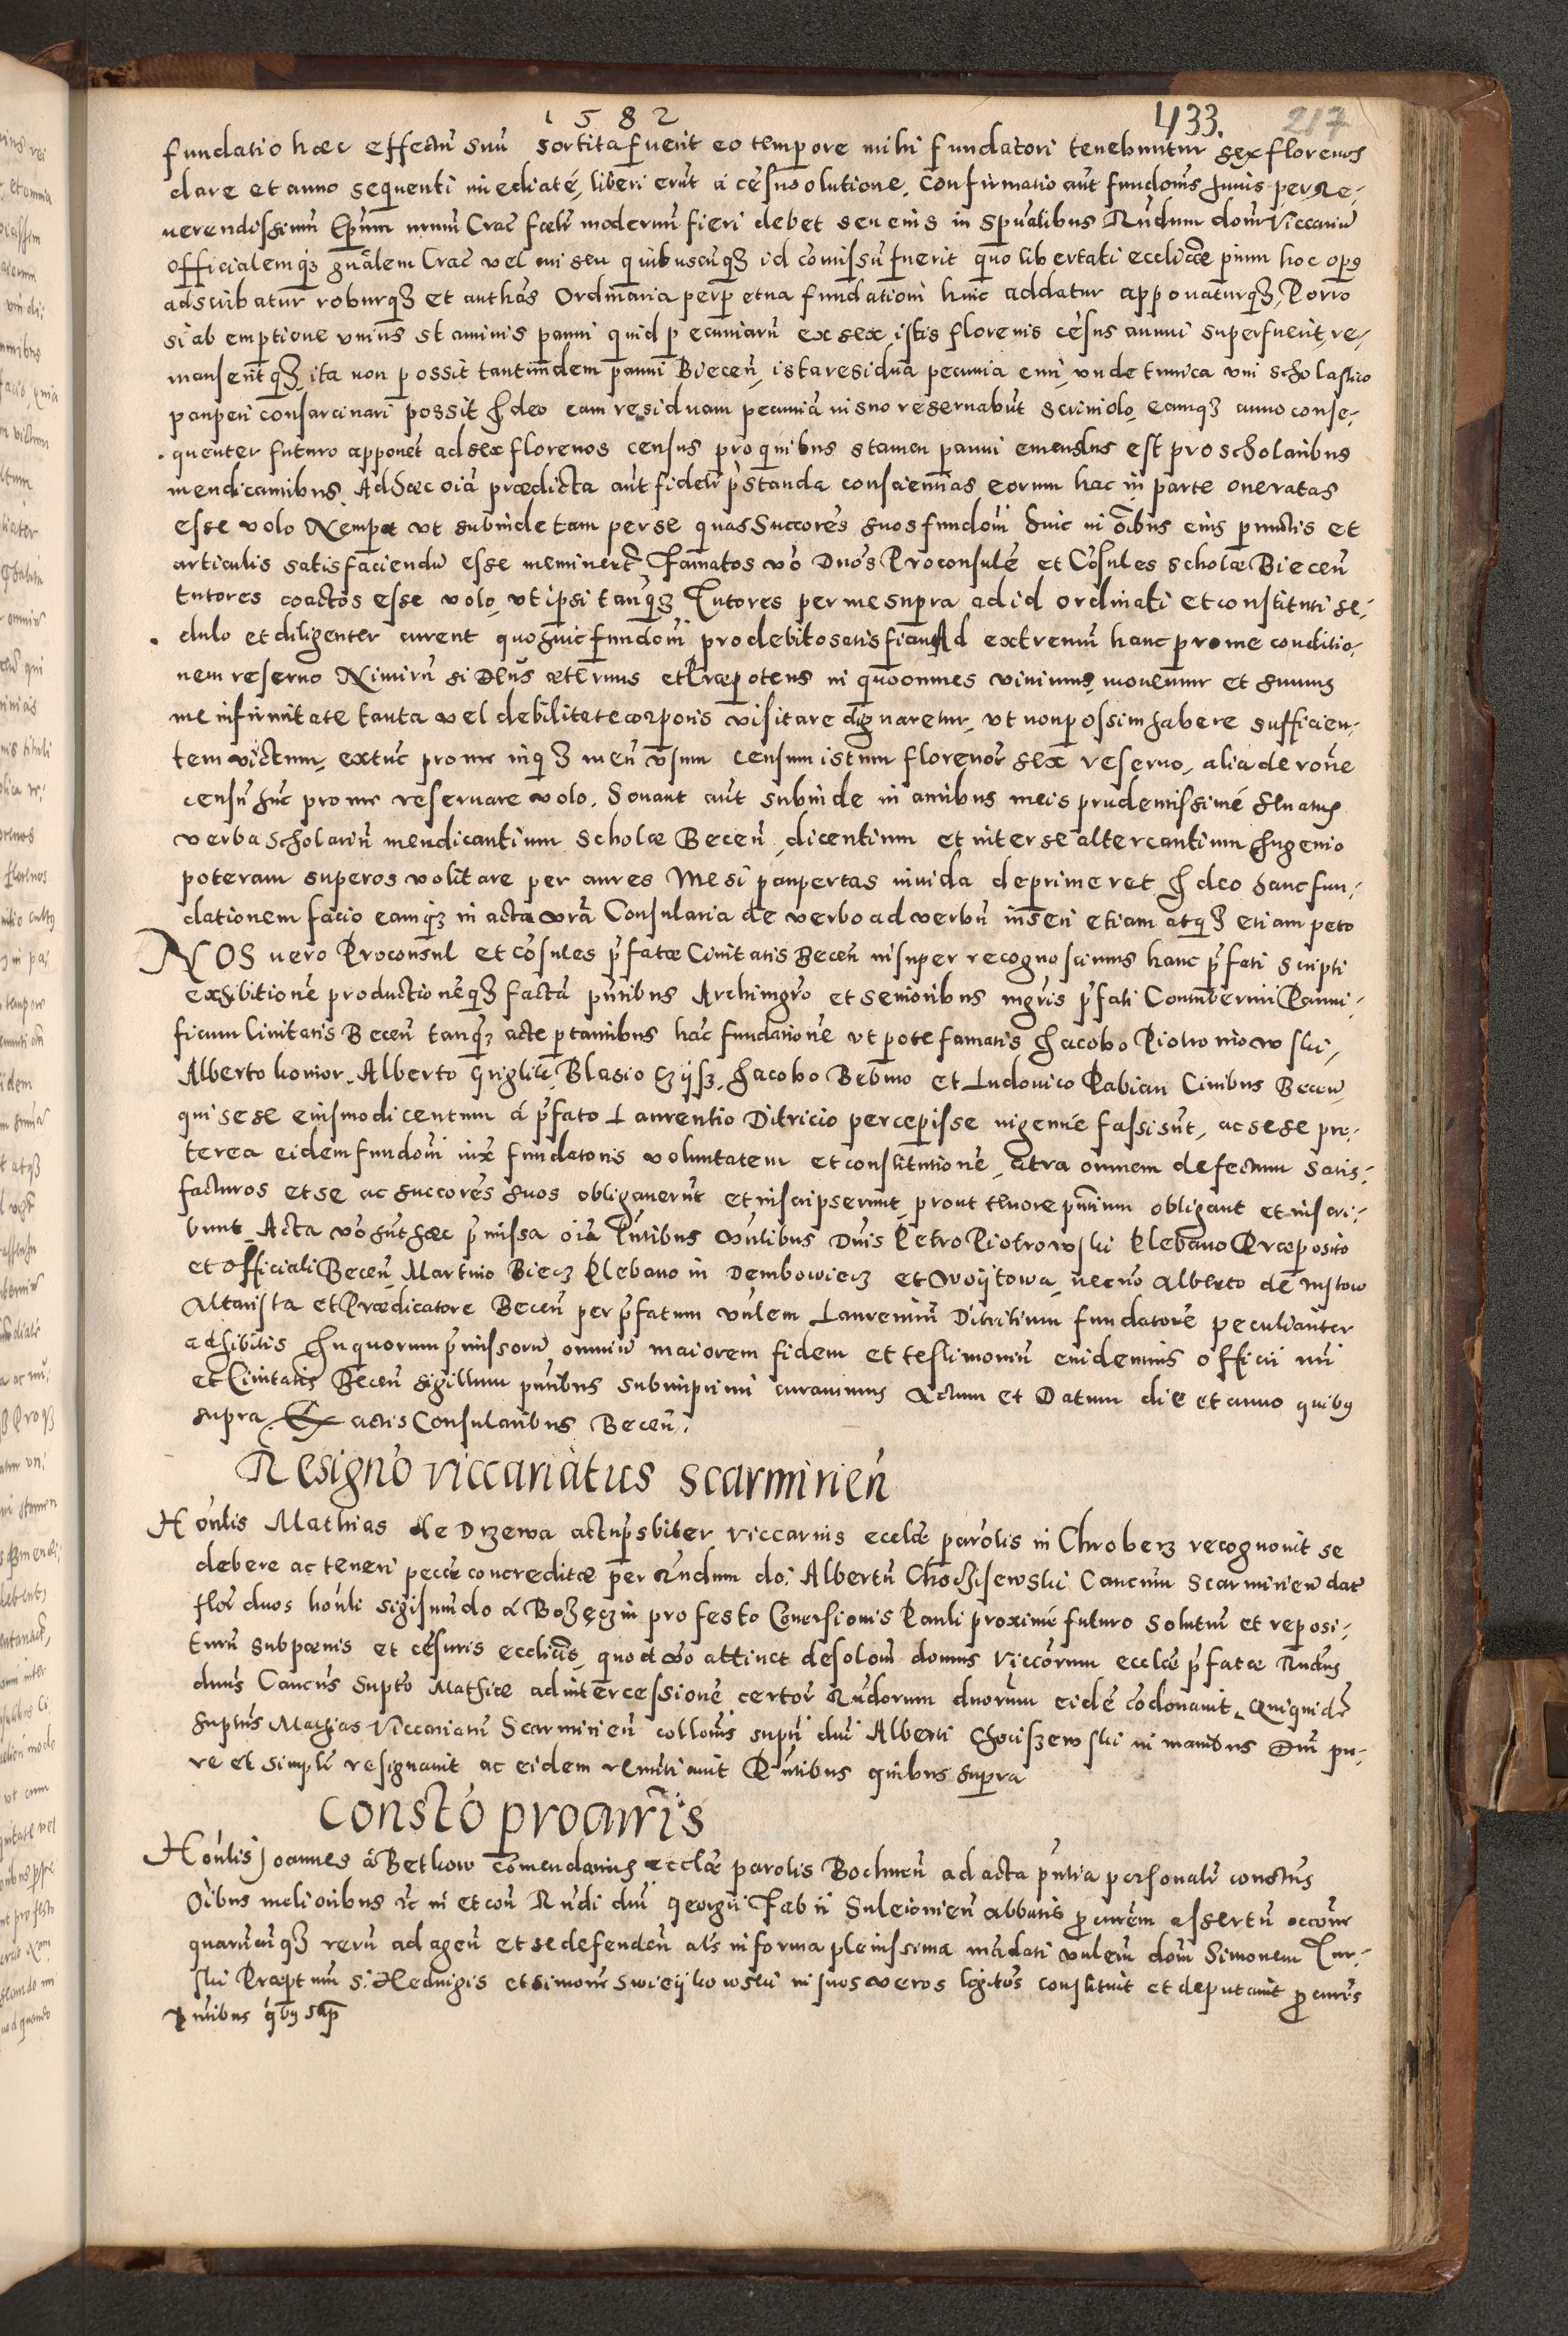 1582 433. 217
fundatio hæc effectū suū sortita fuerit eo tempore mihi fundatori tenebuntur sex florenos
dare et anno sequenti īmediaté, liberi erūt á cēsus solutione, Confirmatio aūt fundonis huius per Re-
uerendissimū Epūm nrum Crac fœlr modernū fieri debet seu eius in Spūalibus Rndum dom̄ Viccariū
Officialemq3 gnālem Crac vel cui seu quibuscūq3 id comissū fuerit quo libertati eccliāe pium hoc op9
adscribatur roburq3 et authās Ordinaria perpetua fundationi huic addatur apponaturq3, Porro
si ab emptione vnius staminis panni quid pecuniarū ex sex istis florenis cēsus annui superfuerit, re-
manseritq3, ita non possit tantundem panni Biecen̄, ista residua pecunia emi, vnde tunica vni scholastico
pauperi consarcinari possit Ideo eam residuam pecuniā in suo reseruabūt scriniolo, eamq3 anno conse-
quenter futuro apponēt ad sex florenos census pro quibus stamen panni emendus est pro scholaribus
mendicantibus. Ad hæc oīa prædicta aūt fidelr pr̄standa conscientias eorum hac in parte oneratas
esse volo Nempe vt subinde tam per se quas Succores suos fundoni huic in oībus eius punctis et
articulis satisfaciendū esse meminerīt Famatos vo Dnos Proconsulē et Cōsules scholæ Biecen̄
tutores coactos esse volo, vt ipsi tanq3 Tutores per me supra ad id ordinati et constituti se-
dulo et diligenter curent quo huic fundoni pro debito satisficiat Ad extremū hanc pro me conditio-
nem reseruo Nimirū si Deus æternus et Præpotens in quo omnes viuimus, mouemur et sumus
me infirmitate tanta vel debilitate corporis visitare dignaretur, vt non possim habere sufficien-
tem victum, extūc pro me inq3 meū vsum censum istum florenor̄ sex reseruo, alia de rone
censū hūc pro me reseruare volo. Sonant aūt subinde in auribus meis prudentissimé
verba scholariū mendicantium scholæ Becen̄, dicentium et inter se altercantium Ingenio
poteram superos volitare per aures Me si paupertas inuida deprimeret Ideo hanc fun-
dationem facio eamq3 in acta vrā Consularia de verbo ad verbū inseri etiam atq3 etiam peto
NOS uero Proconsul et cōsules pr̄fatæ Ciuitatis Becen̄ insuper recognoscimus hanc pr̄fati scripti
exhibitionē productionēq3 factā pntibus Archimgro et senioribus mgris pr̄fati Contubernii Panni-
ficum Ciuitatis Becen̄ tanq3 acceptantibus hāc fundationē vt pote famatis Jacobo Piotrowski,
Alberto komor, Alberto Griglik, Blasio, Jacobo Bebmo et Ludouico Pabian Ciuibus Becen̄
qui sese eiusmodi centum á pr̄fato Laurentio Ditricio percepisse ingenué fassi sūt, ac sese pre-
terea eidem fundoni iux fundatoris voluntatem et constitutionē, citra omnem defectum satis-
facturos et se ac succores suos obligauerūt et inscripserunt, prout tenore pntium obligant et inscri-
bunt, Acta vo sūt hæc pr̄missa oīa Pntibus Vnlibus Dnis Petro Piotrowski Plebano Præposito
et Officiali Becen̄, Martino Biecz Plebano in Dembowiecz et Woijtowa, necno Alberto de
Altarista et Prædicatore Becen̄ per pr̄fatum vnlem Laurentiū Ditritium fundatorē peculianter
adhibitis In quorum pr̄missorū omniū maiorem fidem et testimoniū euidentius officii nri
et Ciuitatis Becen̄ sigillum pntibus subimprimi curauimus Actum et Datum die et anno quib9
supra. Ex actis Consularibus Becen̄.
Resigno viccariatus scarmirien̄
Honlis Mathias de Drzewa actū pr̄sbiter Viccarius ecclæ parolis in Chroberz recognouit se
debere ac teneri peccē concreditæ per Rndum do: Albertū Chociszewski Cancum Scarmirien̄ dat
flor duos honli sigismūdo á Bozęcz in pro festo Conuersionis Pauli proximé futuro Solutur̄ et reposi-
turū sub pœnis et cēsuris ecclicis, quod vo attinet desolom domus Viccorum ecclæ pr̄fatæ Rndus
dnus Cancus Supto Mathiæ ad intercessionē certor Rndorum dnorum eidē cōdonauit, Quiquid
suptus Mathias Viccariatū Scarmirien̄ collonis supti dni Alberti Chociszewski in manibus Dni pu-
re et simplr resignauit ac eidem renūtiauit Pntibus quibus supra
Consto procuris
Honlis Joannes á Betkow Comendarius ecclæ parolis Bochnen̄ ad acta pntia personalr constus
Oībus melioribus et in et con Rndi dni Georgii Fabii Suleiouien̄ abbatis procurem assertū occone
quarūcūq3 rerū ad agen̄ et se defenden̄ als in forma plenissima mādati vnlem dom̄ Simonem Tur-
ski Præptum S: Hedwigis et simone Swieijkowski in suos veros legitos constituit et deputauit procuris
Pntibus qb9 sup